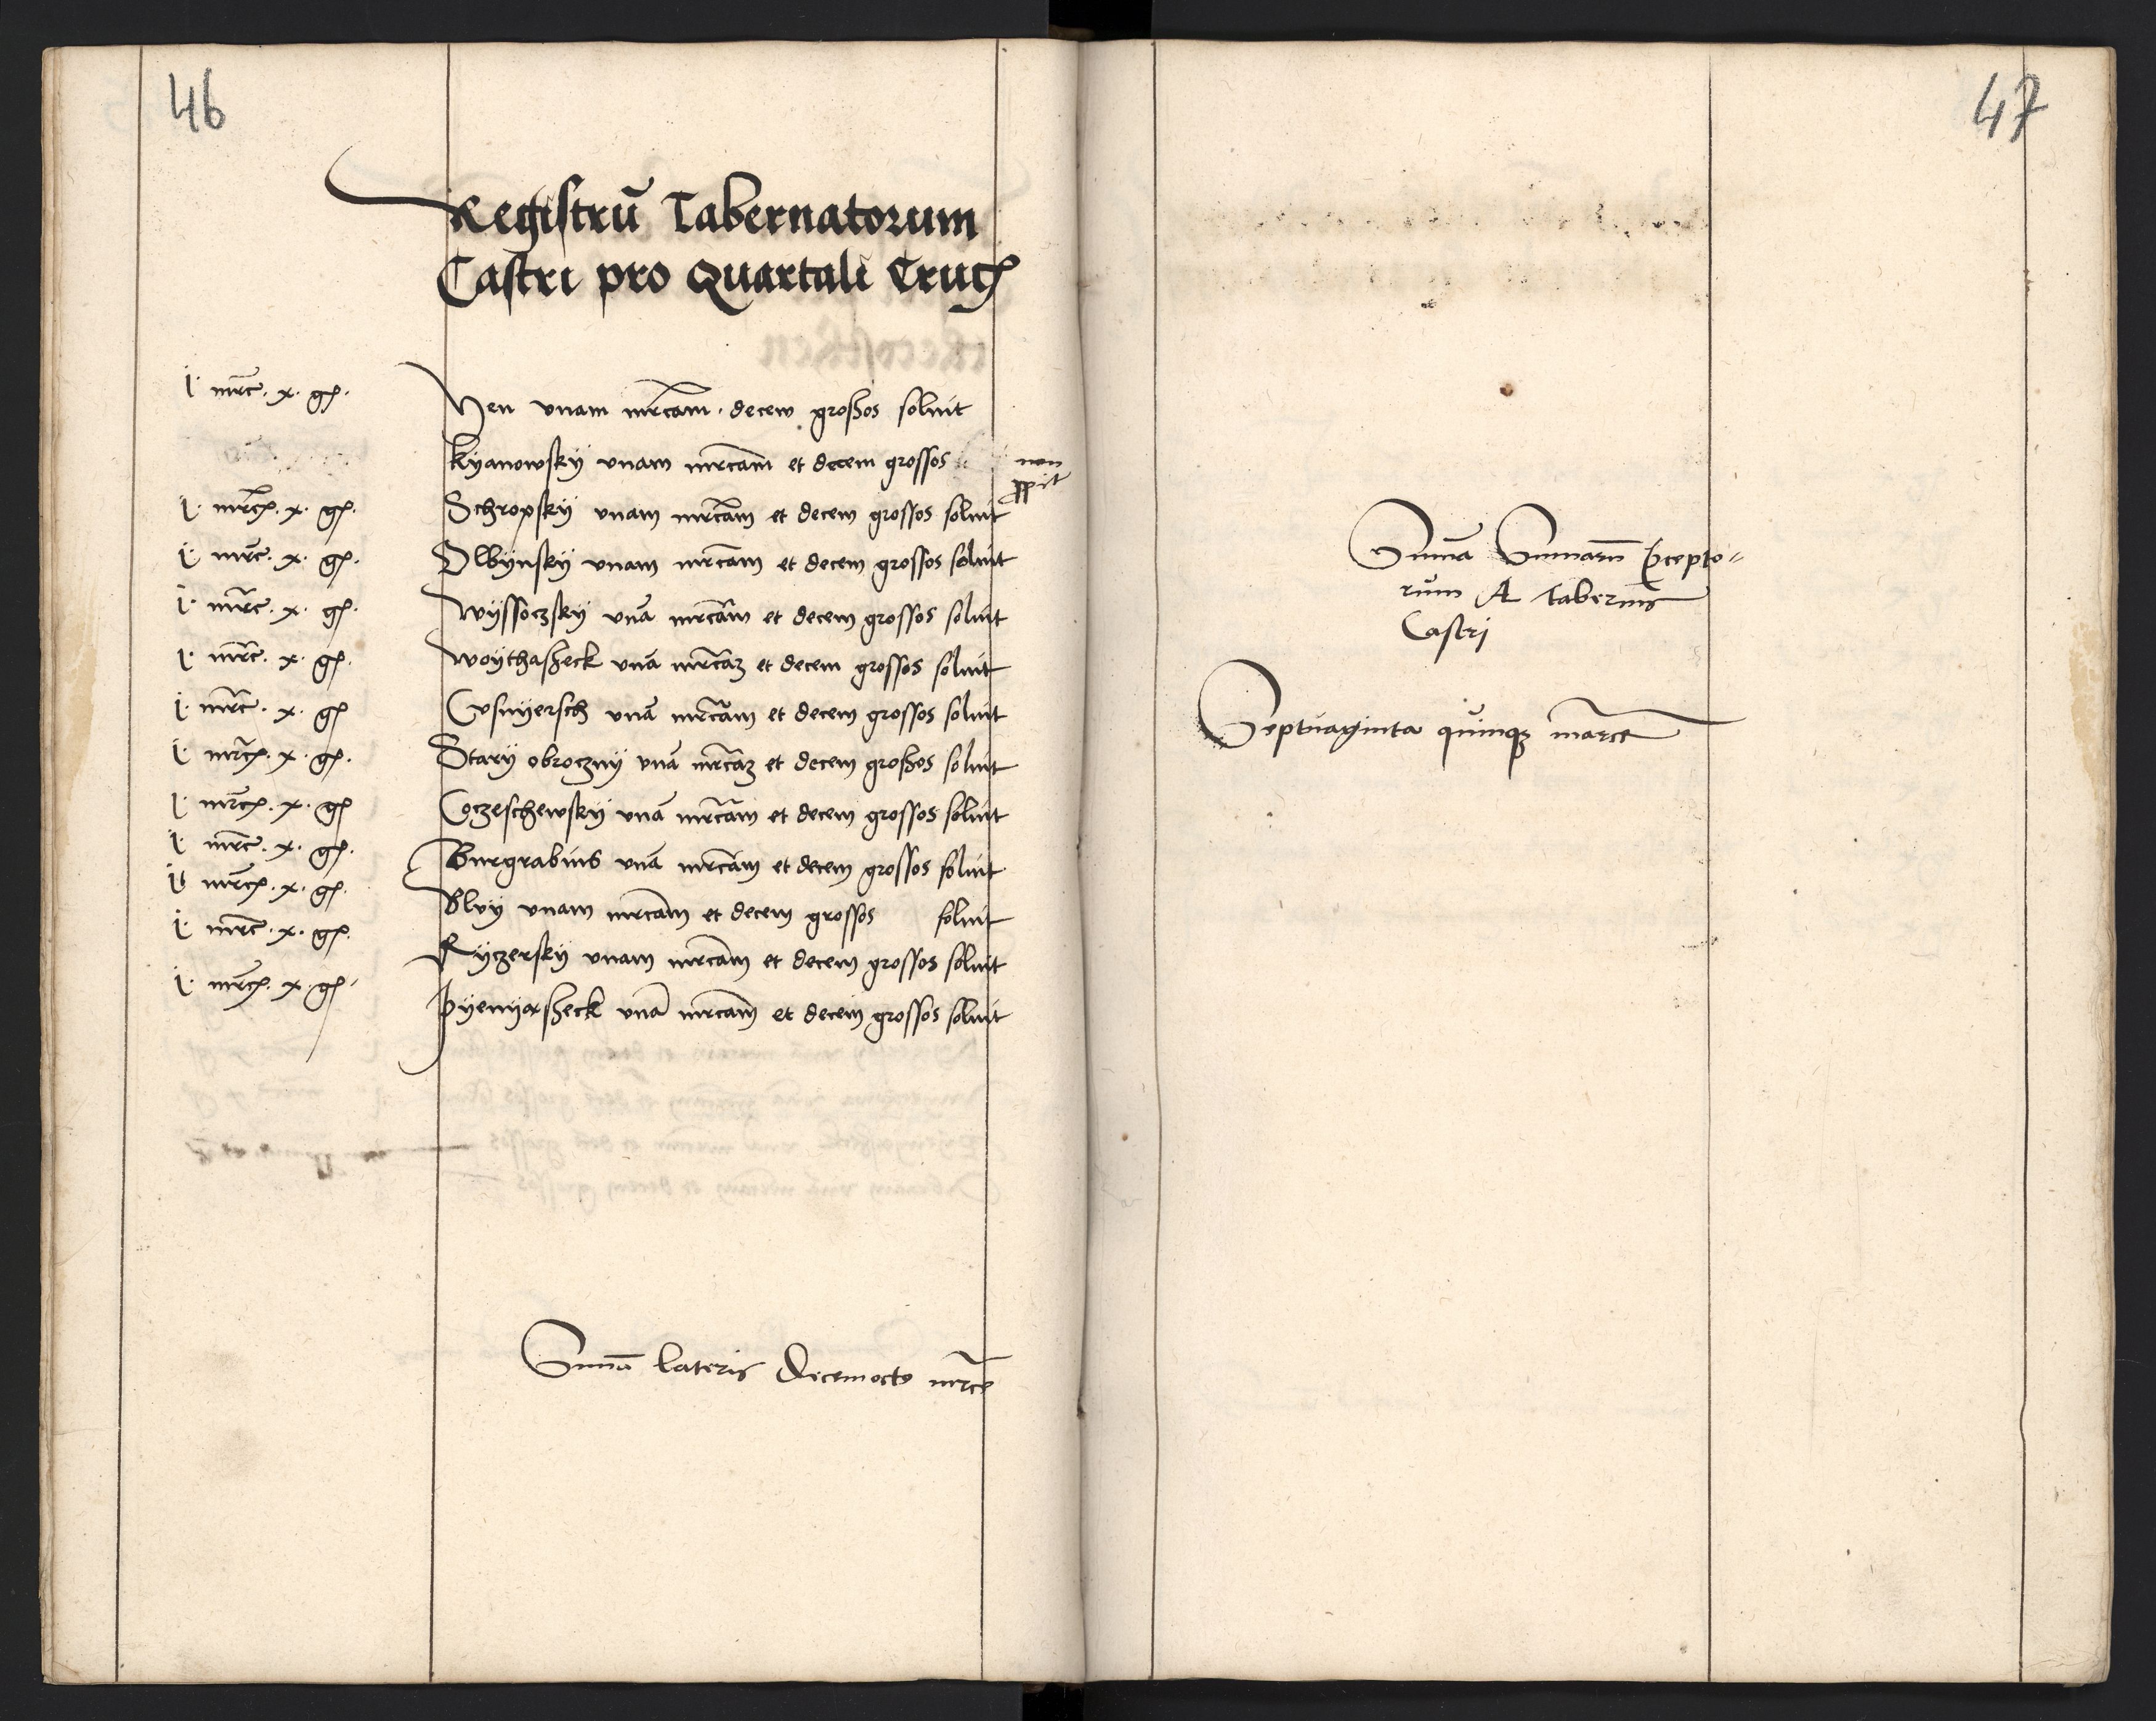 46
Registrũ Tabernatorum
Castri pro Quartali Cruč
i· mrč· x· gř·
Hen vnam mrcam · decem grossos soluit
kyanowsky vnam mrcam et decem grossos non
i· mrč· x· gř·
Schropsky vnam mrcam et decem grossos soluit
i· mrč· x· gř·
Olbynsky vnam mrcam et decem grossos soluit
i· mrč· x· gř·
Wyssoczsky vnã mrcam et decem grossos soluit
i· mrč· x· gř·
Woythasseck vnã mrcaz et decem grossos soluit
i· mrč· x· gř
Cusnyersch vnã mrcam et decem grossos soluit
i· mrč· x· gř·
Stary obroczny vnã mrcaz et decem grossos soluit
i· mrč· x· gř
Coczeschewsky vnã mrcam et decem grossos soluit
i· mrč· x· gř·
Burgrabius vnã mrcam et decem grossos soluit
i· mrč· x· gř·
Blvy vnam mrcam et decem grossos soluit
i· mrč· x· gř·
Ryczersky vnam mrcam et decem grossos soluit
i· mrč· x· gř·
Pyenyasseck vnã mrcam et decem grossos soluit
Summa lateris Decemocto mrce
47
Summa Summarũ p̱cepto-
rum A tabernis
Castri
Septuaginta quinqz marce